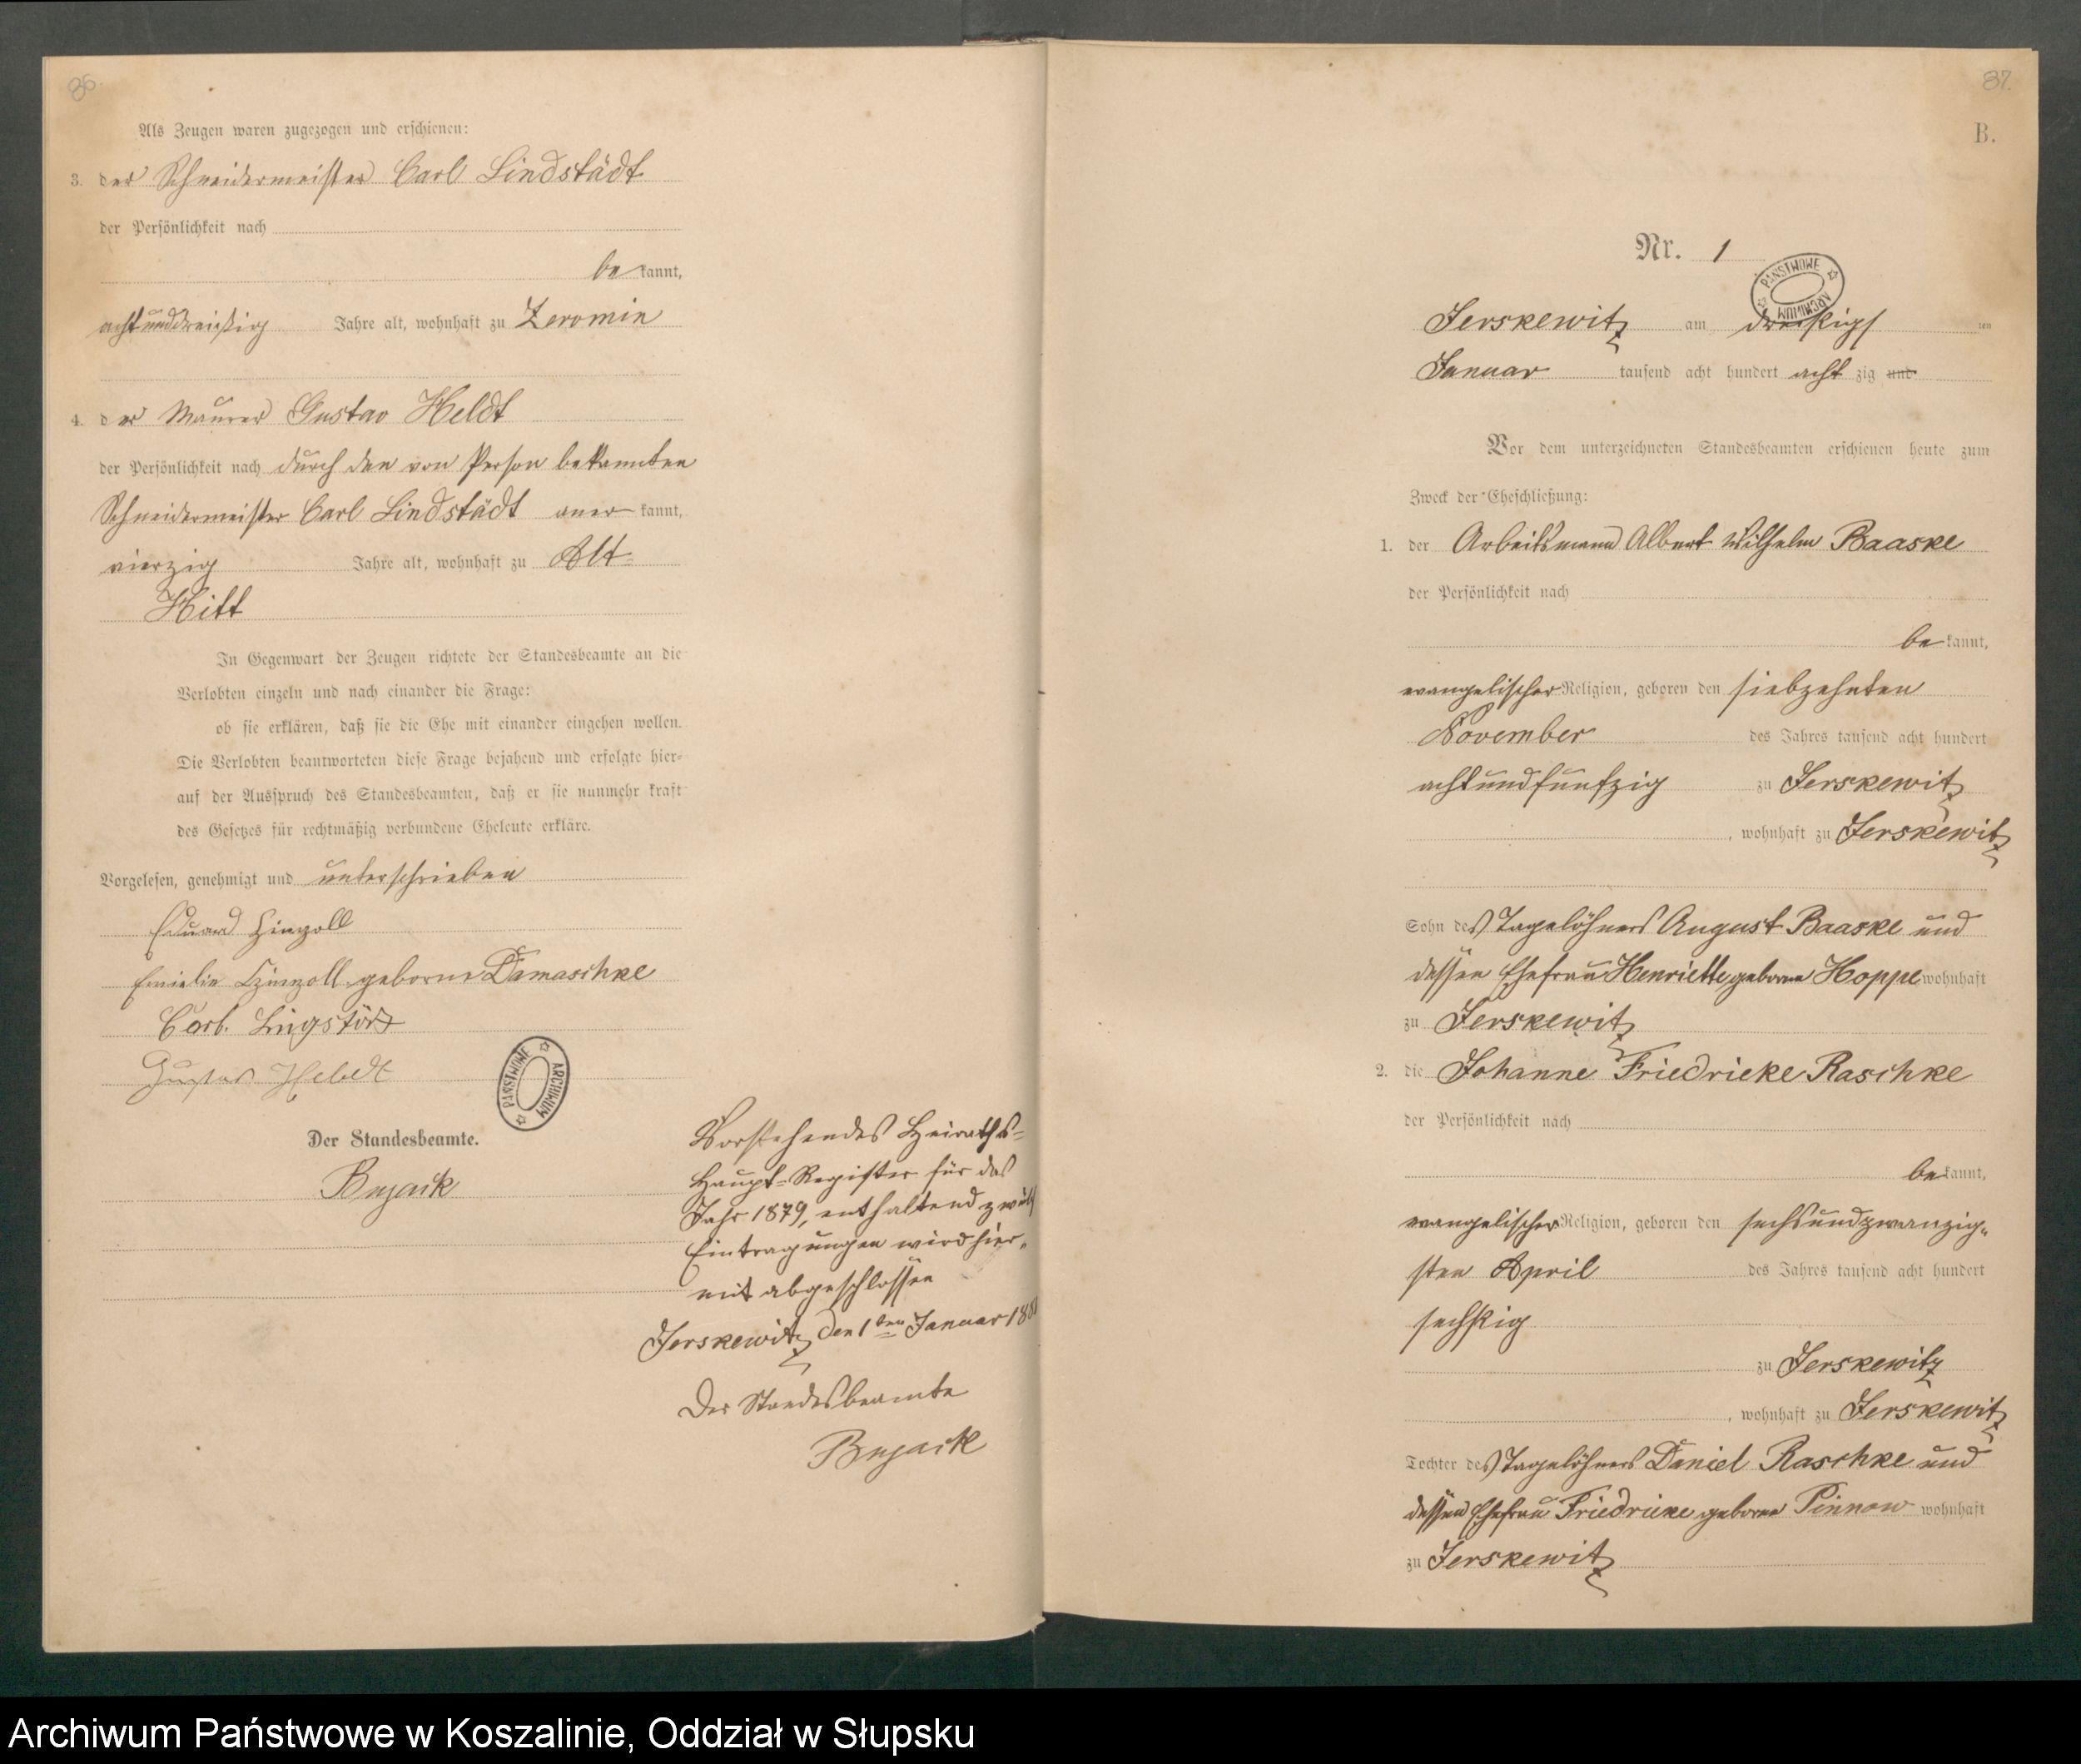 86.
Als Zeugen waren zugezogen und erschienen:
3. der Schneidermeister Carl Lindstädt
der Persönlichkeit nach
be kannt,
achtunddreißig Jahre alt, wohnhaft zu Zeromin
4. der Maurer Gustav Heldt
der Persönlichkeit nach durch den von Person bekannten
Schneidermeister Carl Lindstädt aner kannt,
vierzig Jahre alt, wohnhaft zu Alt-
Hitt
In Gegenwart der Zeugen richtete der Standesbeamte an die
Verlobten einzeln und nach einander die Frage:
ob sie erklären, daß sie die Ehe mit einander eingehen wollen.
Die Verlobten beantworteten diese Frage bejahend und erfolgte hier-
auf der Ausspruch des Standesbeamten, daß er sie nunmehr kraft
des Gesetzes für rechtmäßig verbundene Eheleute erkläre.
Vorgelesen, genehmigt und unterschrieben
Eduard
Emilie geborne Damaschke
Carl
Gustav Heldt
PAŃSTWOWE ARCHIWUM
Der Standesbeamte.
Bujack
Vorstehendes Heiraths-
Haupt-Register für das
Jahr 1879, enthaltend zwölf
Eintragungen wird hier-
mit abgeschlossen
Jerskewitz, den 1ten Januar 188
Der Standesbeamte
Bujack
87.
B.
Nr. 1
PAŃSTWOWE ARCHIWUM
Jerskewitz am dreißigs ten
Januar tausend acht hundert acht zig und
Vor dem unterzeichneten Standesbeamten erschienen heute zum
Zweck der Eheschließung:
1. der Arbeitsmann Albert Wilhelm Baaske
der Persönlichkeit nach
be kannt,
evangelischer Religion, geboren den siebzehnten
November des Jahres tausend acht hundert
achtundfünfzig zu Jerskewitz
, wohnhaft zu Jerskewitz
Sohn des Tagelöhners August Baaske und
dessen Ehefrau Henriette geborne Hoppe wohnhaft
zu Jerskewitz
2. die Johanne Friedricke Raschke
der Persönlichkeit nach
be kannt,
evangelischer Religion, geboren den sechsundzwanzig-
sten April des Jahres tausend acht hundert
sechszig
zu Jerskewitz
, wohnhaft zu Jerskewitz
Tochter des Tagelöhners Daniel Raschke und
dessen Ehefrau Friedricke geborne Pinnow wohnhaft
zu Jerskewitz
Archiwum Państwowe w Koszalinie, Oddział w Słupsku